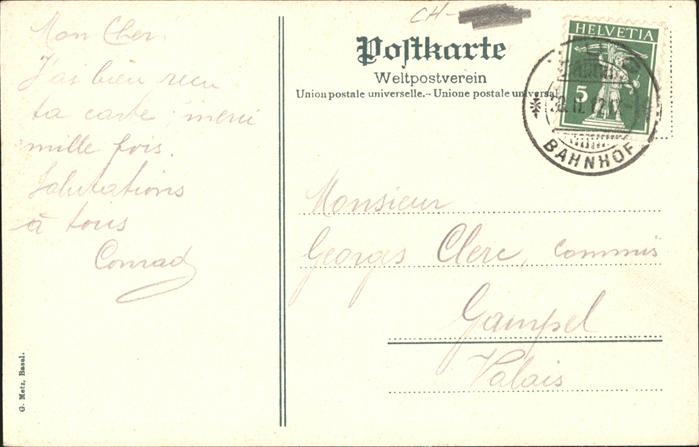 Mon Cher.
J'ai bien recu
ta carte, merci
mille fois.
Salutations
à tous
Conrad
G. Metz, Basel.
CH-
Postkarte
Weltpostverein
Union postale universelle.- Unione postale universal
HELVETIA
5
BAHNHOF
Monsieur
Georges Clerc, commis
Gampel
Valais